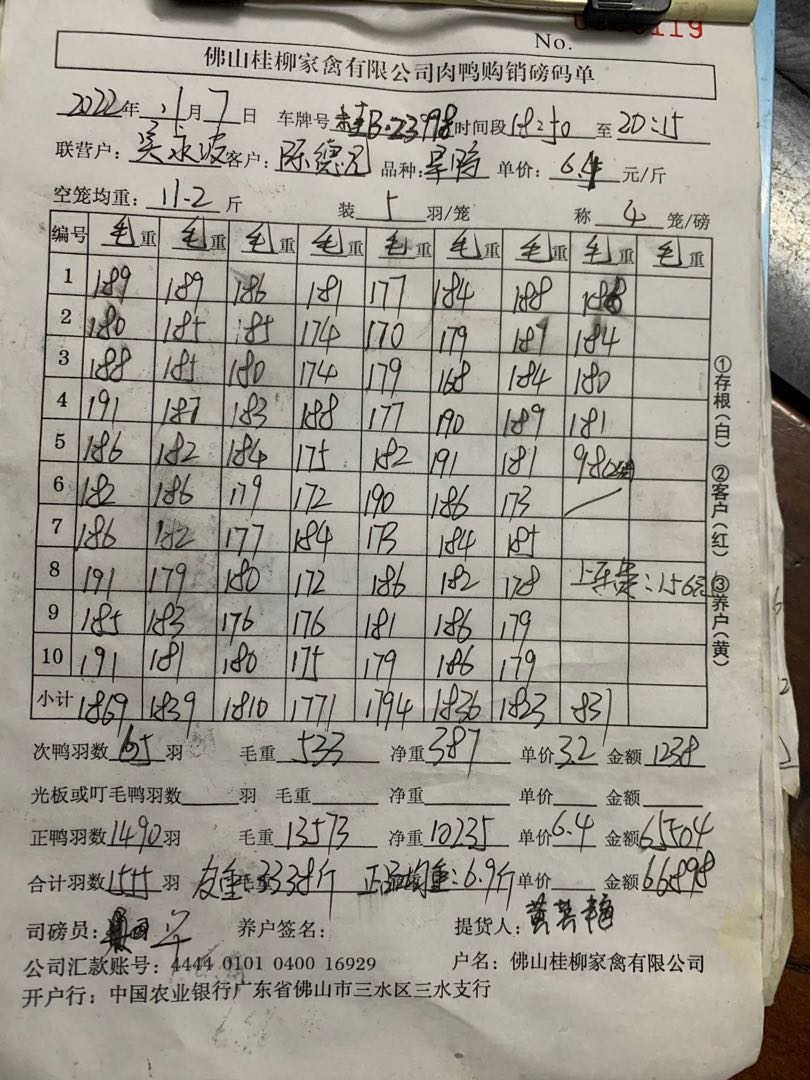 No.
119
佛山桂柳家禽有限公司肉鸭购销磅码单
2022年 11月 7日 车牌号 桂B·23998 时间段 18:50 至 20:15
联营户: 吴永波 客户: 陈德 品种: 单价: 6.4 元/斤
空笼均重: 11.2 斤 装 5 羽/笼 称 4 笼/磅
编号 毛重 毛重 毛重 毛重 毛重 毛重 毛重 毛重 毛重
1 189 189 186 181 177 184 188 188
2 180 185 185 174 170 179 187 184
3 188 185 180 174 179 168 184 180
4 191 187 183 188 177 190 189 181
5 186 182 184 175 182 191 181 98
6 182 186 179 172 190 186 173
7 186 182 177 184 173 184 185
8 191 179 180 172 186 182 178 上车费:156元
9 185 183 176 176 181 186 179
10 191 181 180 175 179 186 179
小计 1869 1839 1810 1771 1794 1836 1823 831
次鸭羽数 65 羽 毛重 533 净重 387 单价 3.2 金额 1238
光板或叮毛鸭羽数 羽 毛重 净重 单价 金额
正鸭羽数 1490 羽 毛重 13573 净重 10235 单价 6.4 金额 65504
合计羽数 1555 羽 皮重 3338斤 正品均重:6.9斤 单价 金额 66898
司磅员: 养户签名: 提货人: 黄
公司汇款账号: 4444 0101 0400 16929 户名: 佛山桂柳家禽有限公司
开户行: 中国农业银行广东省佛山市三水区三水支行
①存根(白) ②客户(红) ③养户(黄)